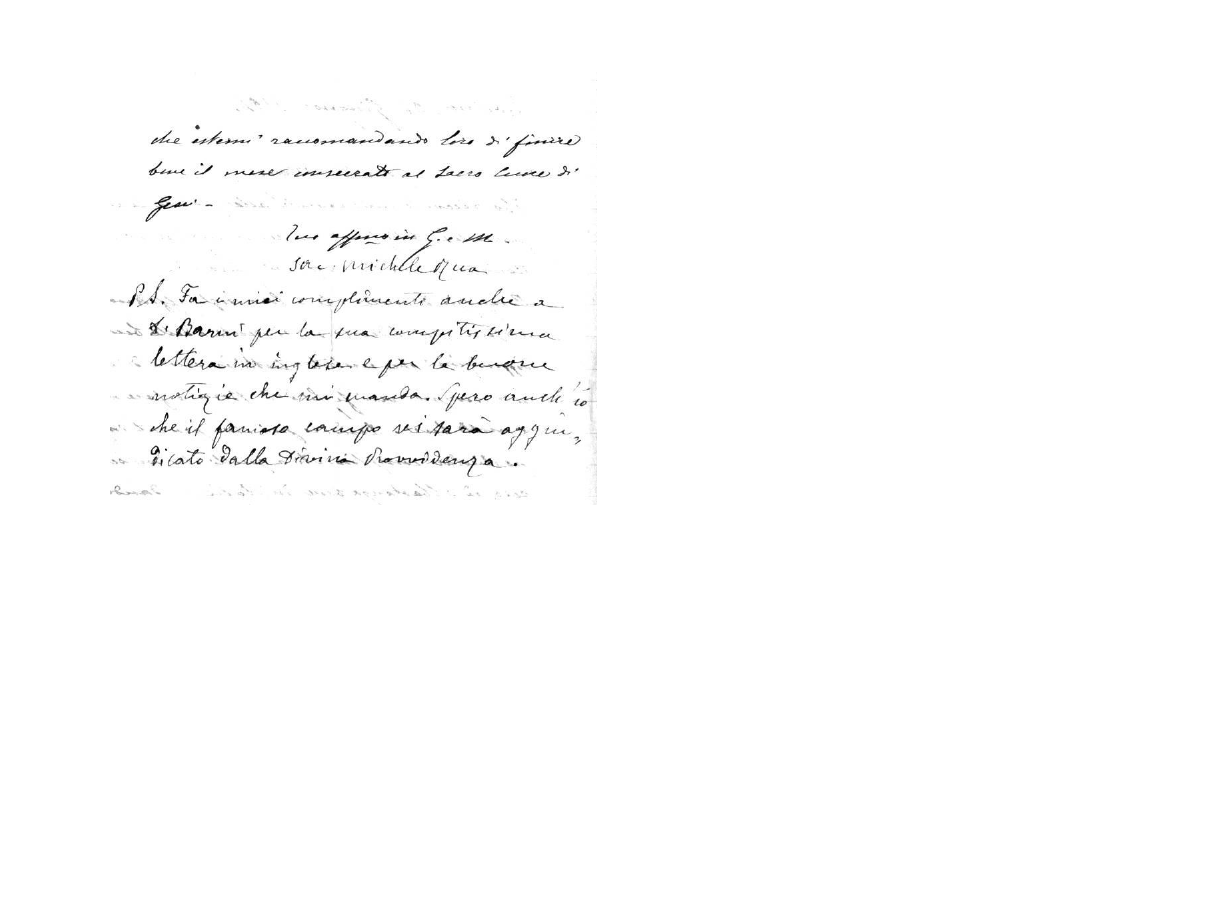 che esterni raccomandando loro di finire
bene il mese consecrato al Sacro Cuore di
Gesù -
Tuo affmo in G. e M.
Sac. Michele Rua
P.S. Fa i miei complimenti anche a
D. Barni per la sua compitissima
lettera in inglese e per le buone
notizie che mi manda. Spero anch'io
che il famoso campo vi sarà aggiu,
dicato dalla Divina Provvidenza.